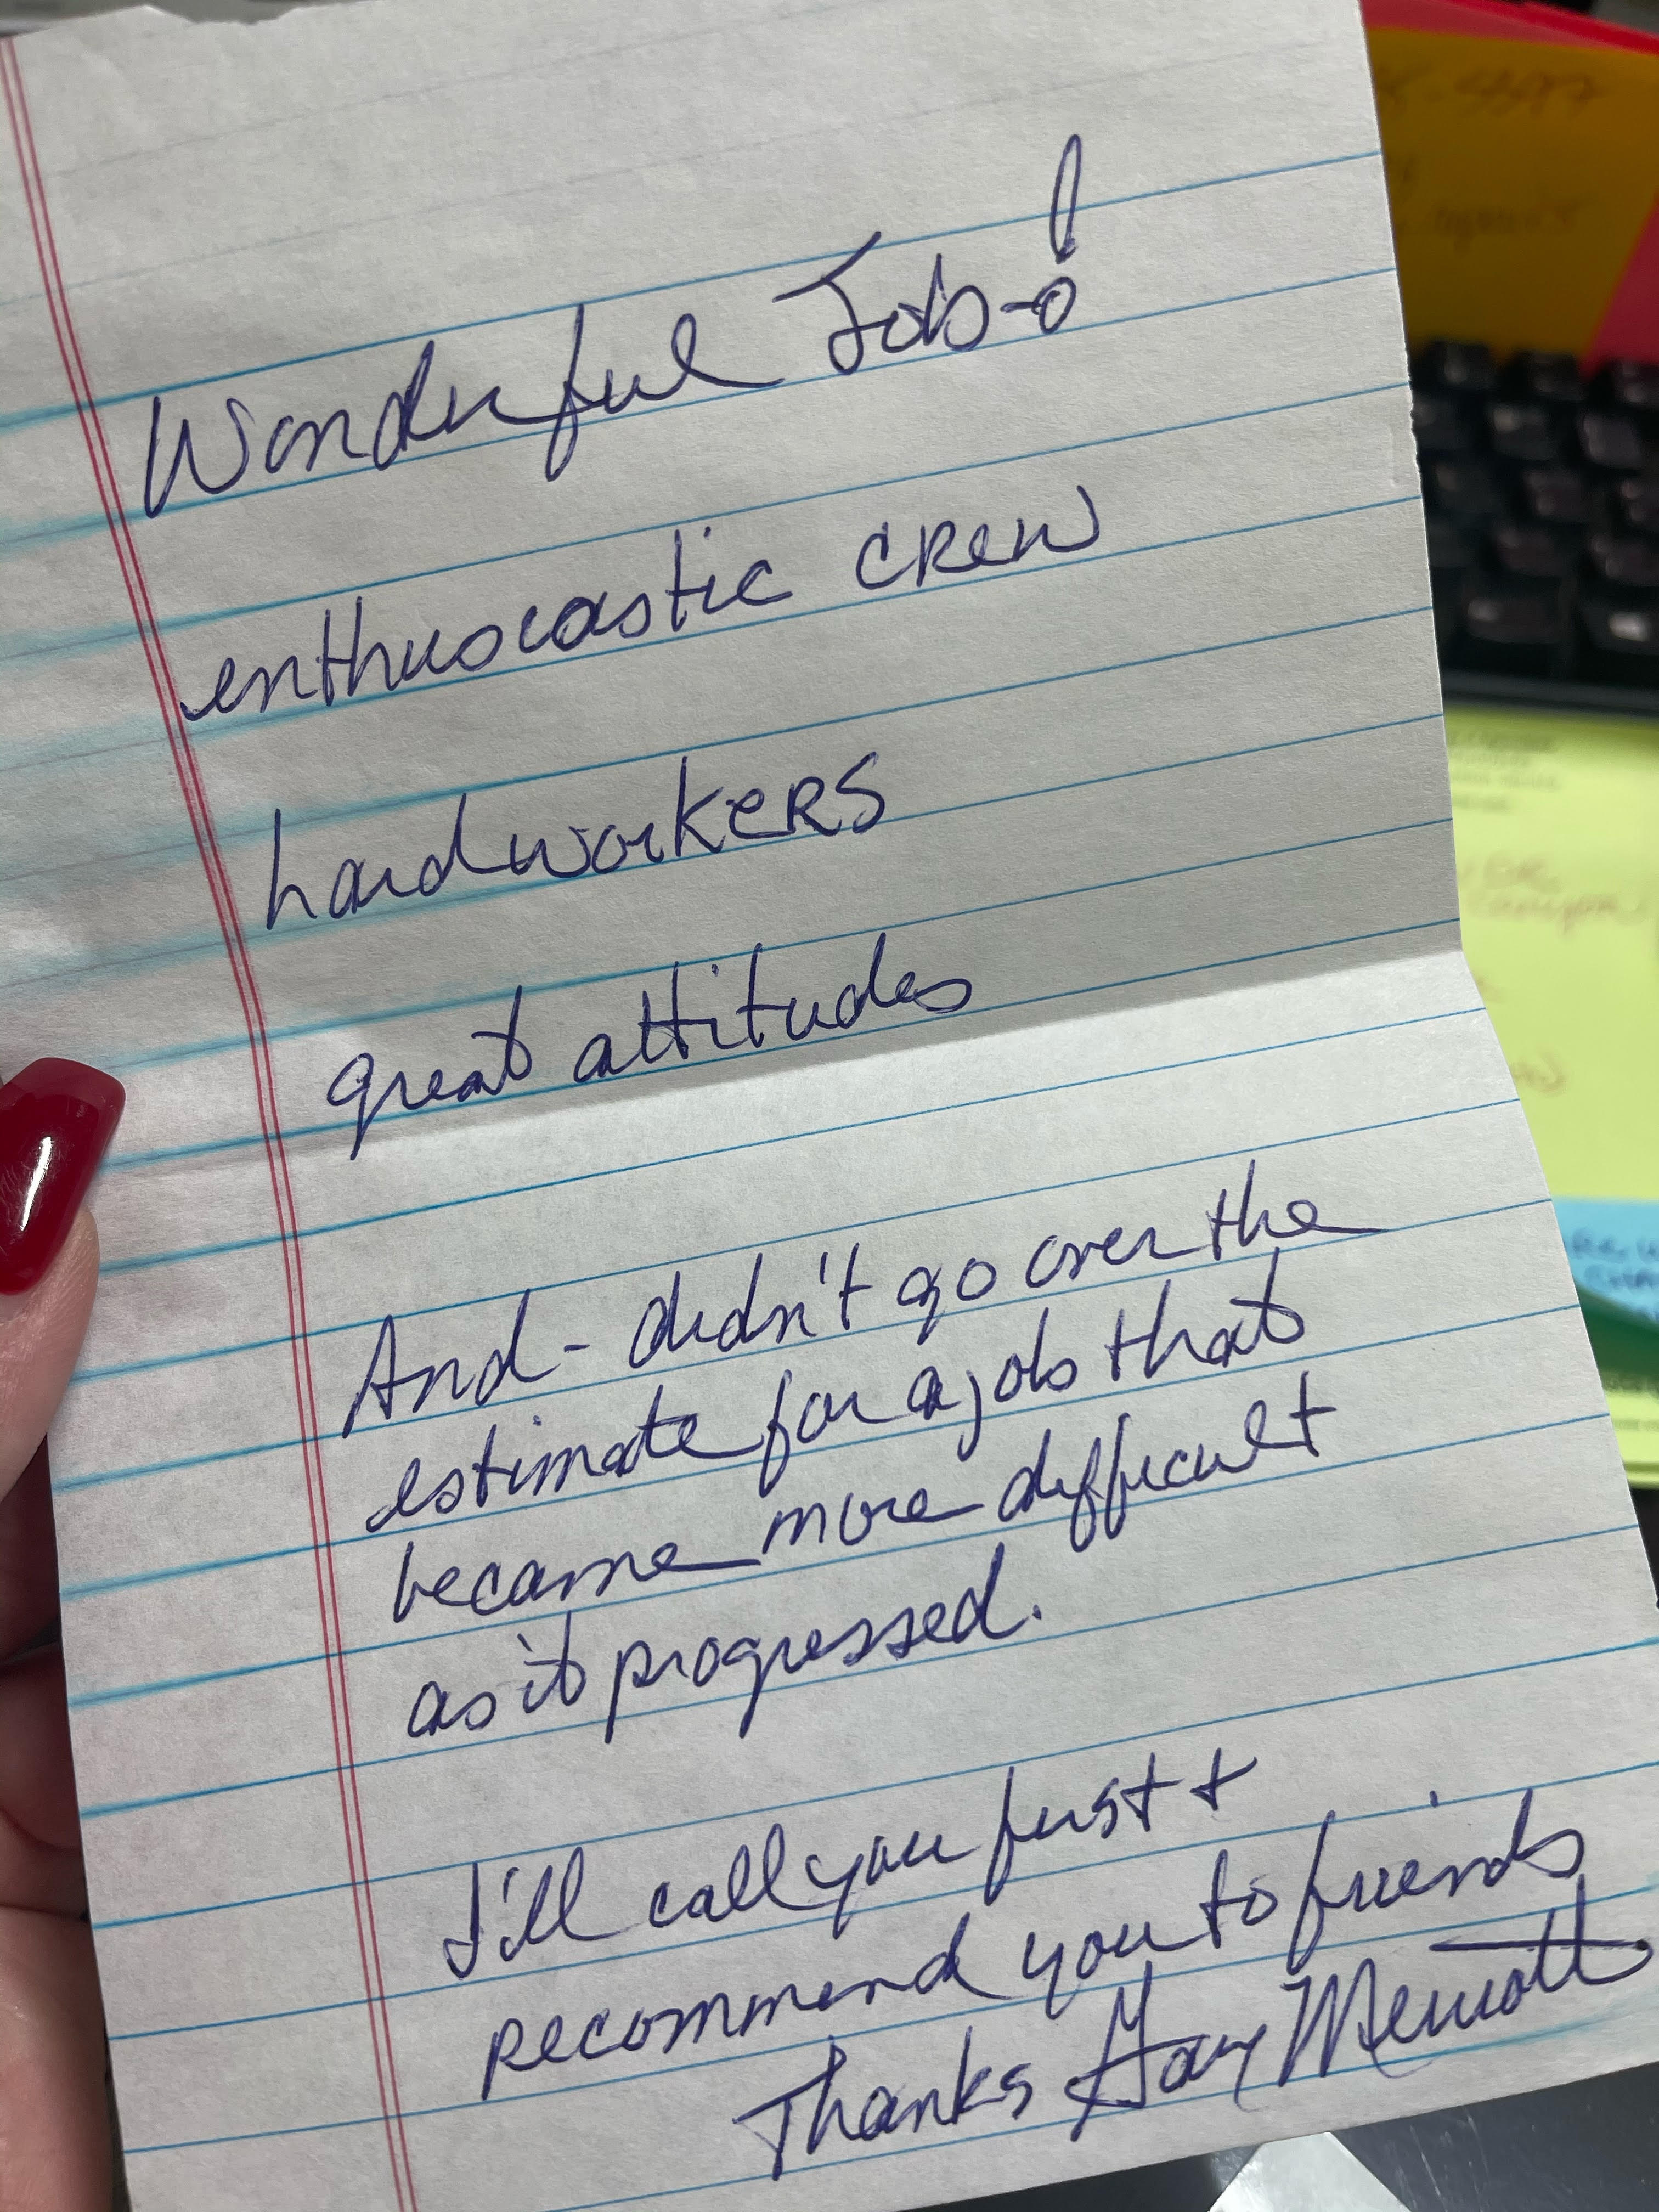 Wonderful Job-!
enthusocastic CReW
hardworkeRS
great attitudes
And - didn't go over the
estimate for a job that
became more difficult
as it progressed.
I'll call you first +
recommend you to friends
Thanks Gary Merriott